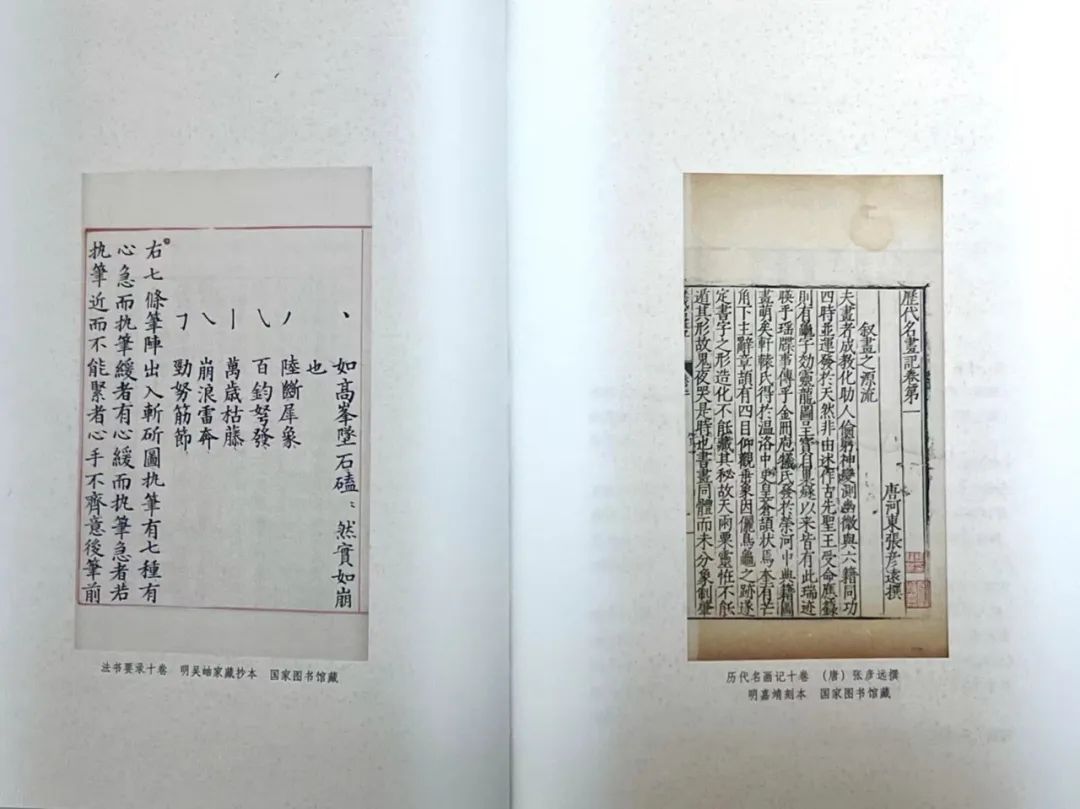 丶 如高峯墜石磕〻然實如崩
也
丿 陸斷犀象
㇂ 百鈞弩發
丨 萬歲枯藤
乀 崩浪雷奔
㇆ 勁努筋節
右七條筆陣出入斬斫圖执筆有七種有
心急而执筆緩者有心緩而执筆急者若
执筆近而不能緊者心手不齊意後筆前
法书要录十卷 明吴岫家藏抄本 国家图书馆藏
歷代名畫記卷第一
唐河東張彦遠撰
叙畫之源流
夫畫者成教化助人倫窮神變測幽微與六籍同功
四時並運發於天然非由述作古先聖王受命應籙
則有龜字効靈龍圖呈寶自巢燧以来皆有此瑞迹
暎乎瑶牒事傳乎金冊庖犧氏發於榮河中典籍圖
畫萌矣軒轅氏得於温洛中史皇蒼頡狀焉奎有芒
角下主辭章頡有四目仰觀垂象因儷鳥龜之跡遂
定書字之形造化不䏻藏其秘故天雨粟靈恠不䏻
遁其形故鬼夜哭是時也書畫同體而未分象制肇
历代名画记十卷 （唐）张彦远撰
明嘉靖刻本 国家图书馆藏